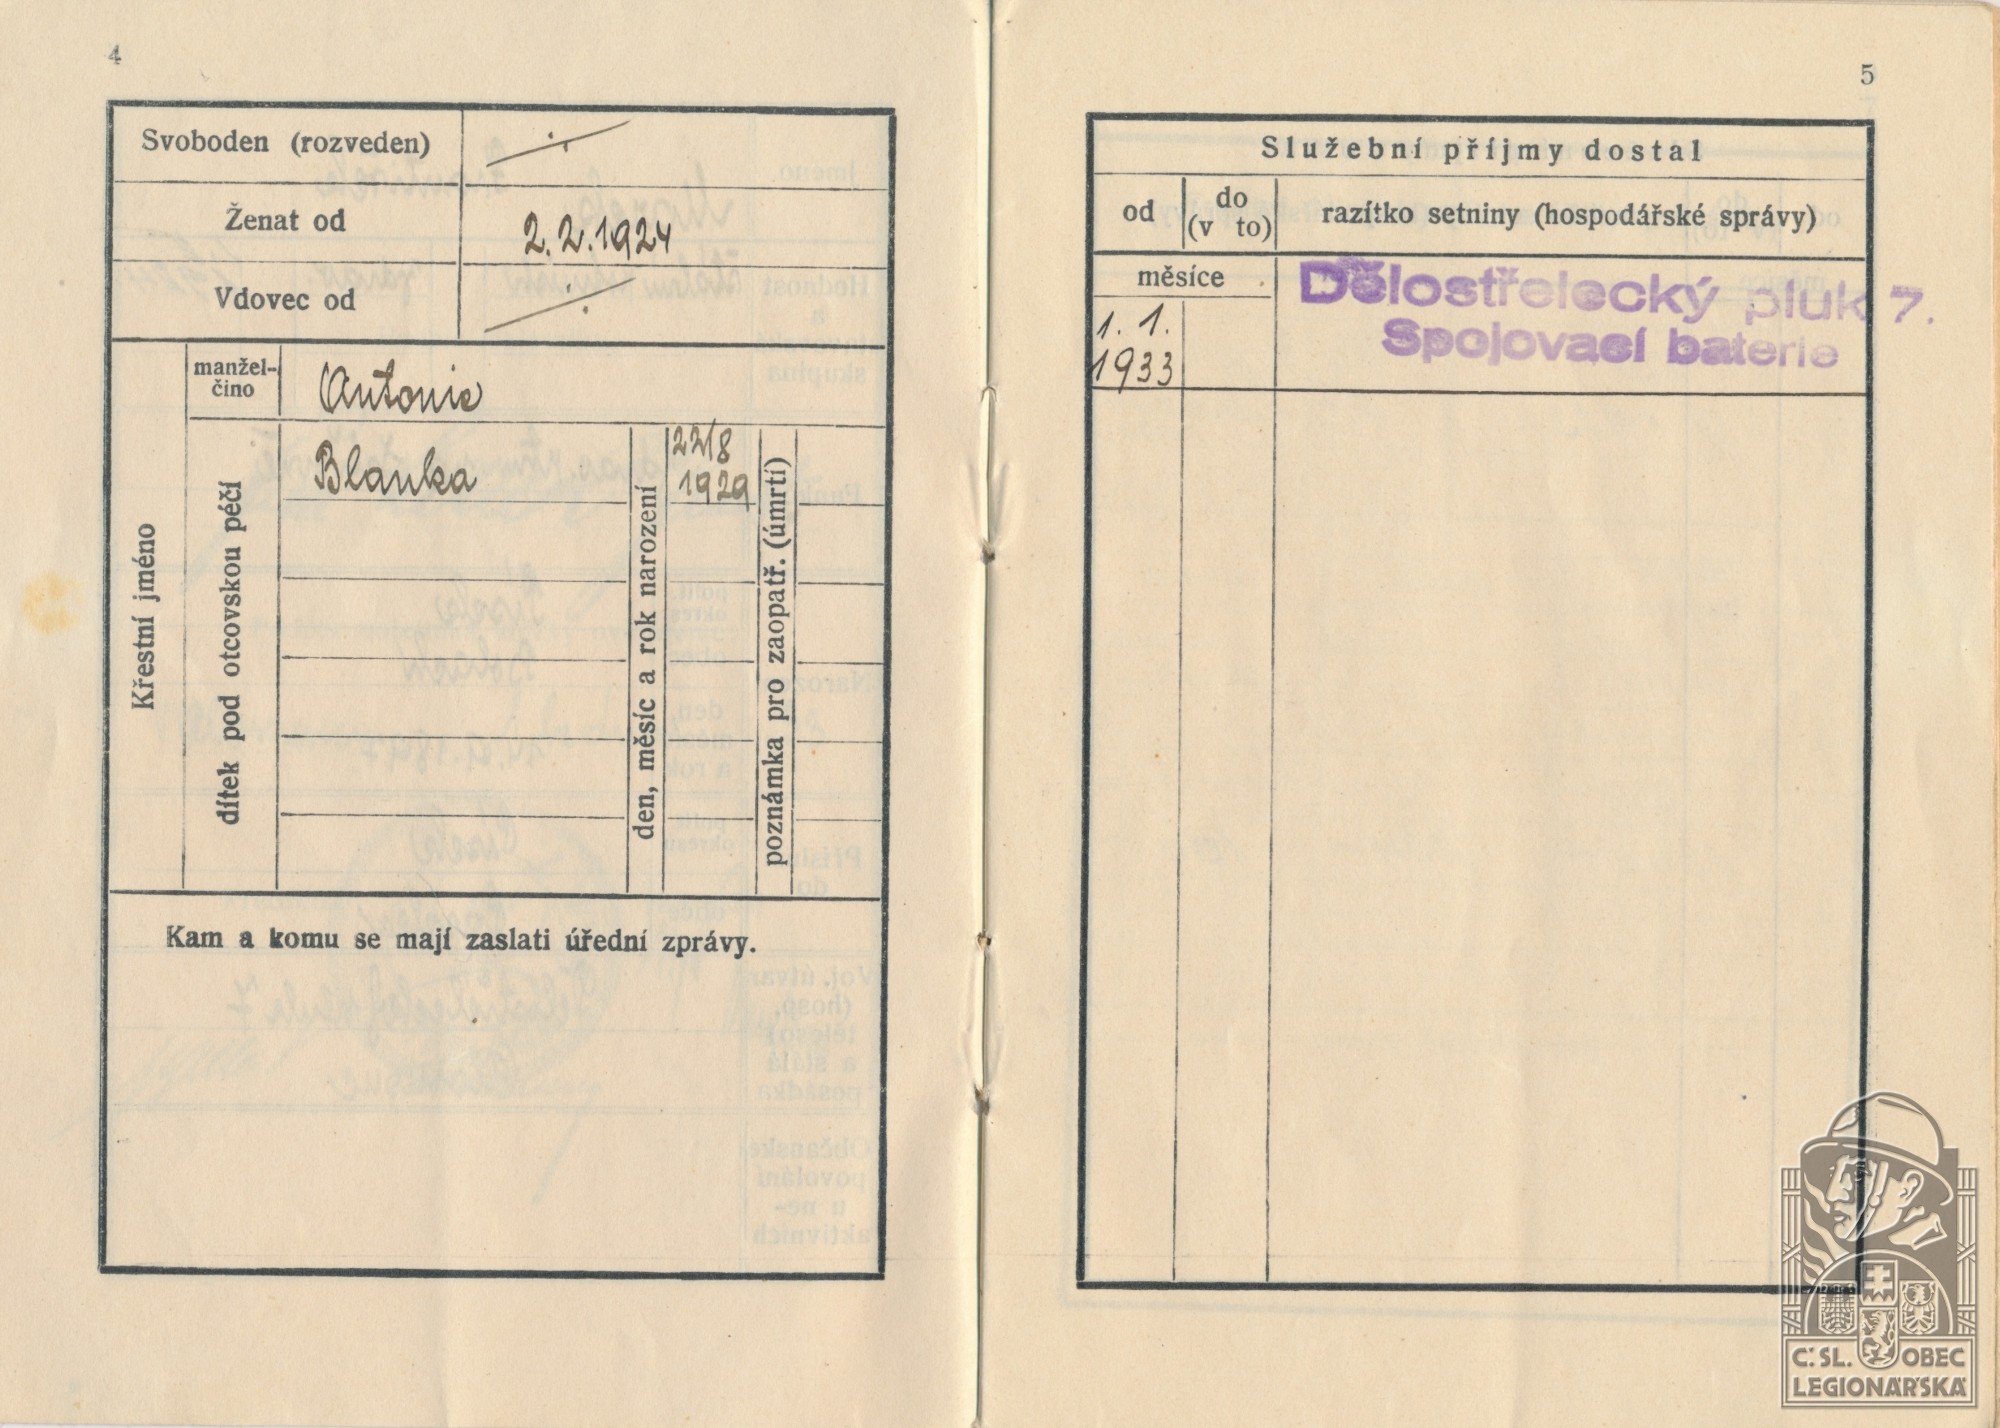 4
Svoboden (rozveden)
Ženat od
2. 2. 1924
Vdovec od
Křestní jméno
manžel-
čino
Antonie
dítek pod otcovskou péčí
Blanka
den, měsíc a rok narození
22/8
1929
poznámka pro zaopatř. (úmrtí)
Kam a komu se mají zaslati úřední zprávy.
5
Služební příjmy dostal
od
do
(v to)
razítko setniny (hospodářské správy)
měsíce
1. 1.
1933
Dělostřelecký pluk 7.
Spojovací baterie
Č.SL. OBEC
LEGIONÁŘSKÁ